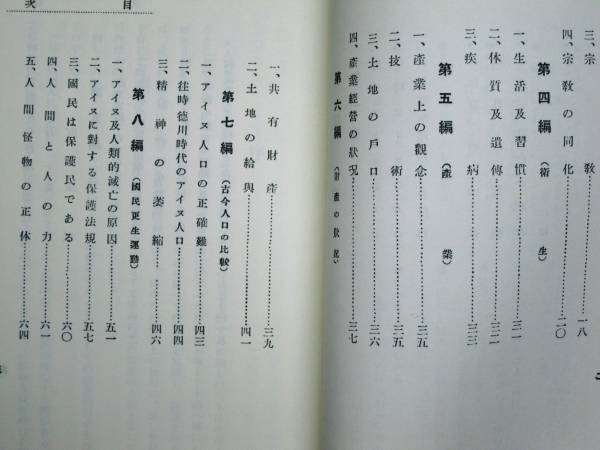 三、宗教……一八
四、宗教の同化……二〇
第四編（衛生）
一、生活及習慣……三一
二、体質及遺傳……三二
三、疾病……三三
第五編（產業）
一、產業上の觀念……三五
二、技術……三五
三、土地の戶口……三六
四、產業經營の狀況……三七
第六編（財產の狀況）
一、共有財產……三九
二、土地の給與……四一
第七編（古今人口の比較）
一、アイヌ人口の正確難……四三
二、往時德川時代のアイヌ人口……四四
三、精神の萎縮……四六
第八編（國民更生運動）
一、アイヌ及人類的滅亡の原因……五一
二、アイヌに對する保護法規……五七
三、國民は保護民である……六〇
四、人間と人の力……六一
五、人間怪物の正体……六四
目次